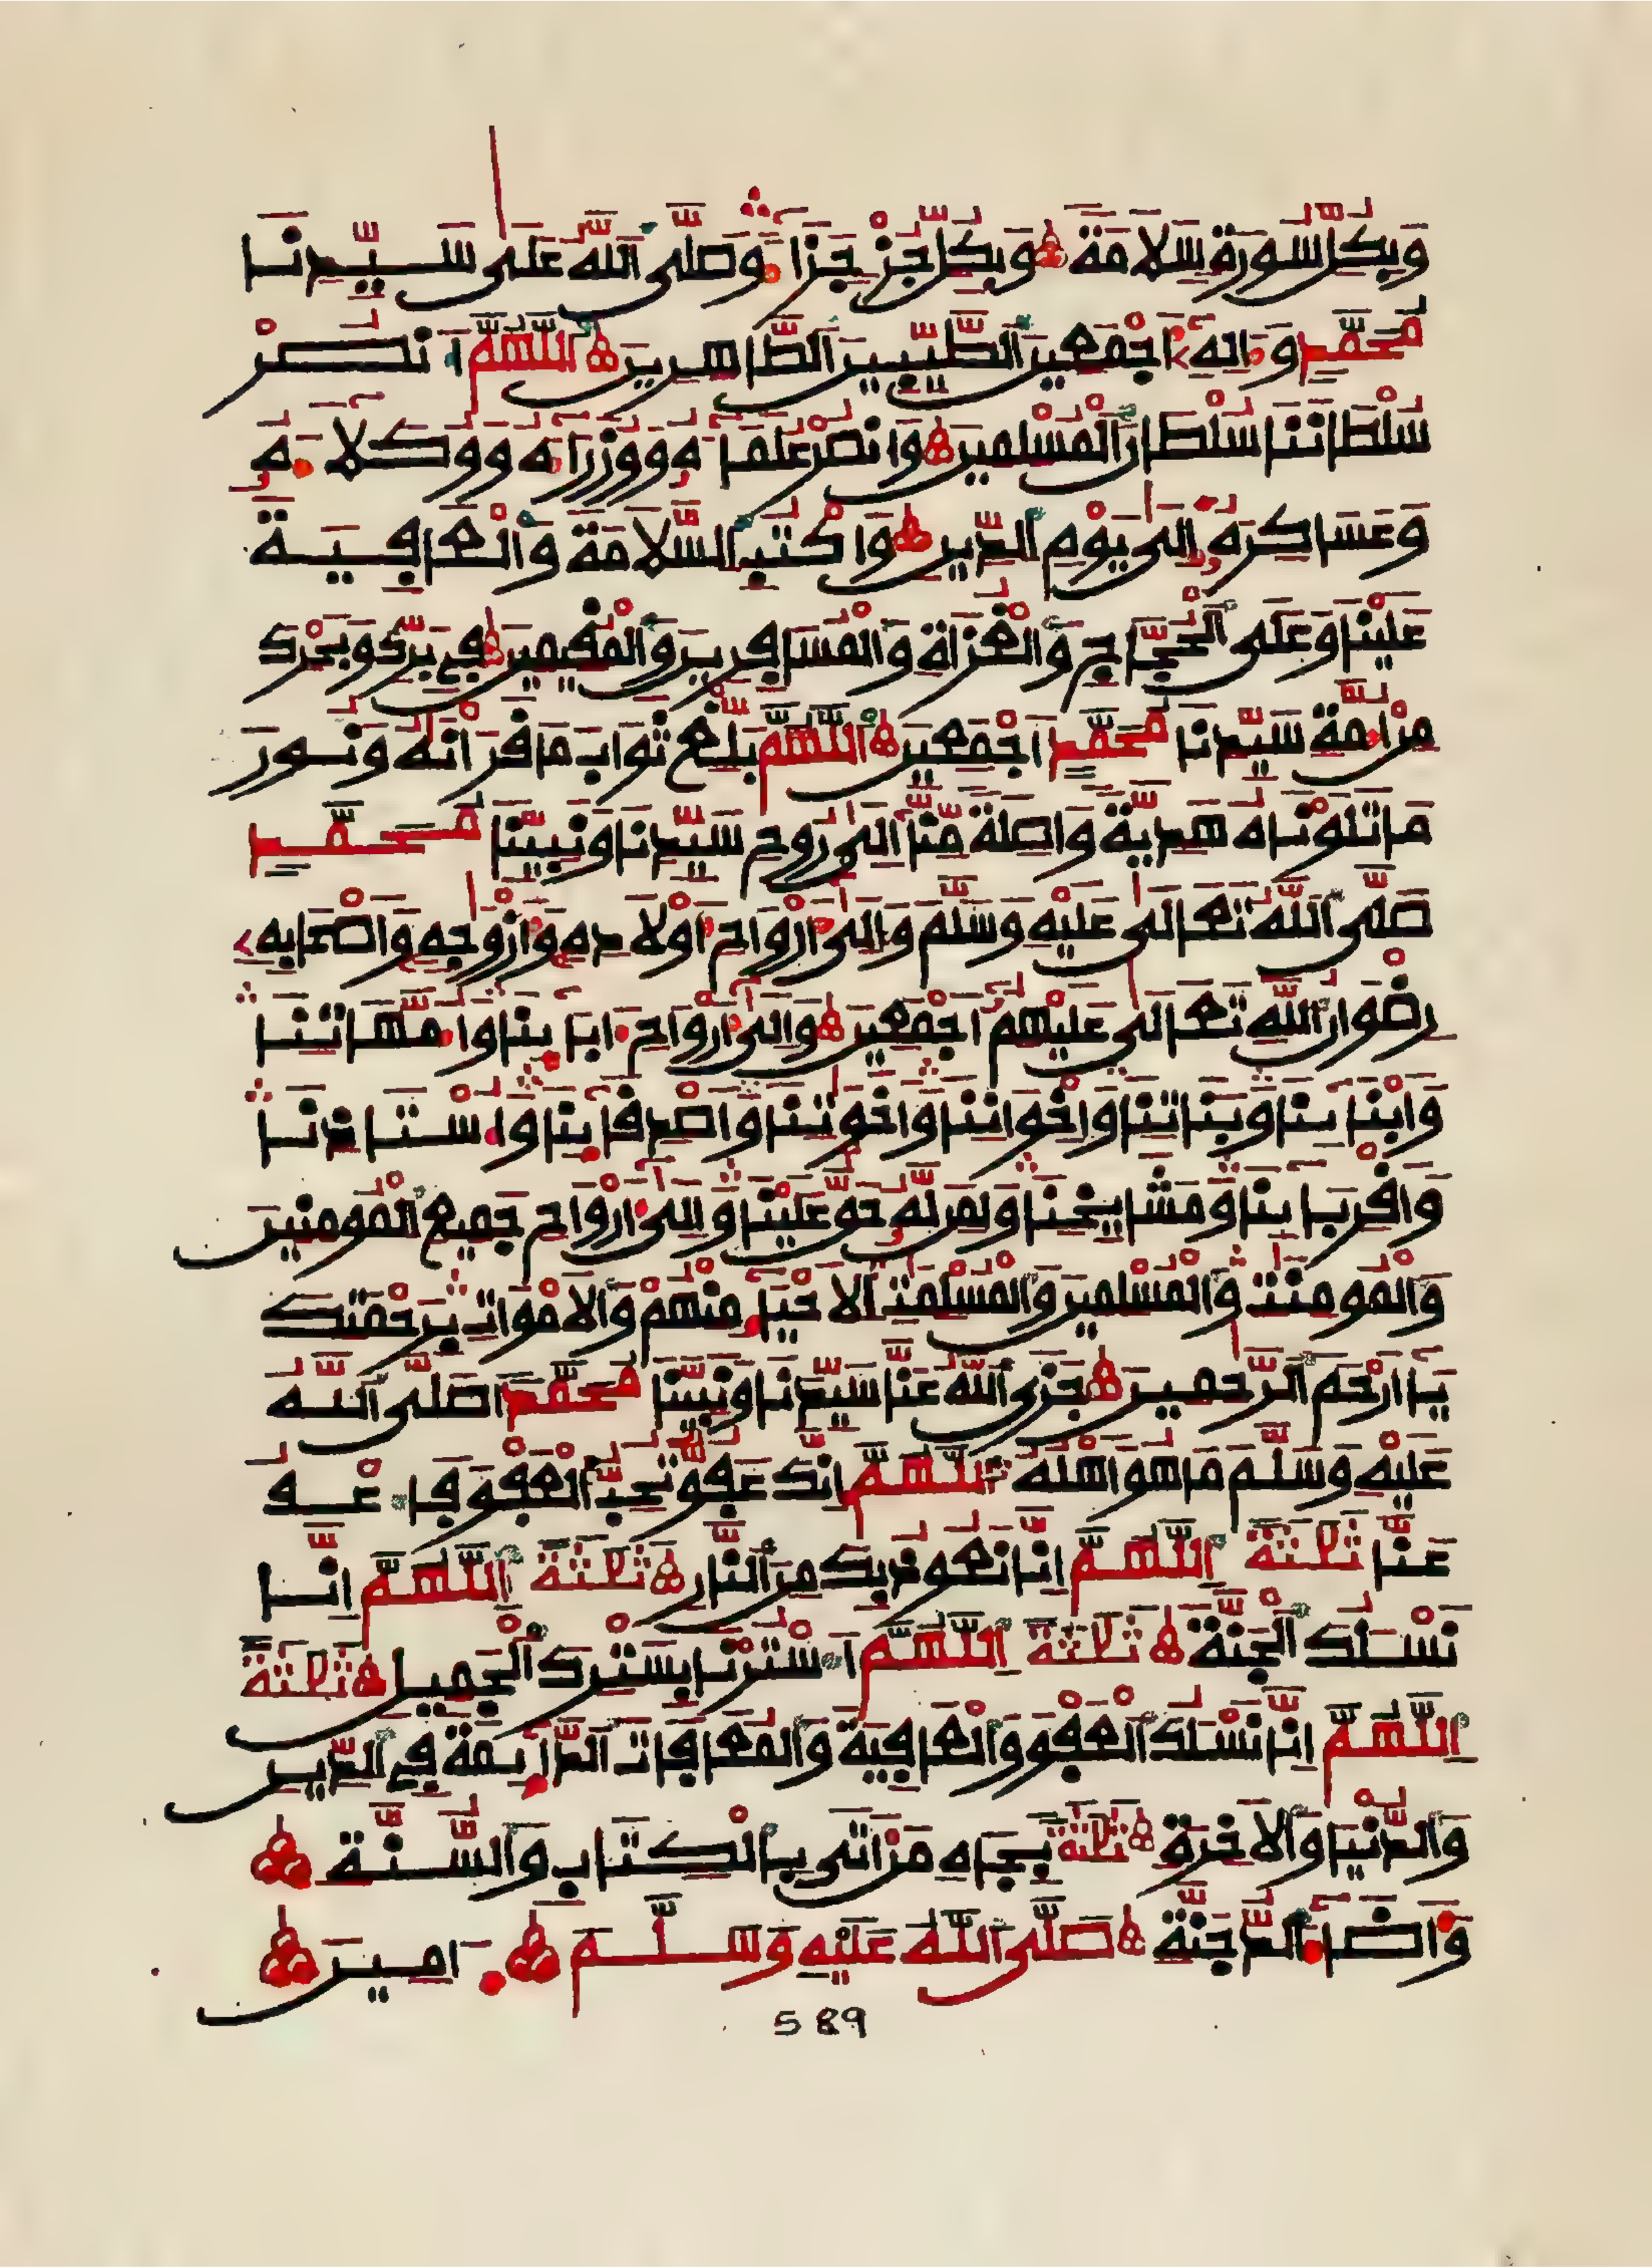 وَبِكُلِّ سُورَةٍ سَلَامَةً وَبِكُلِّ جُزْءٍ جَزَاءً وَصَلَّى اللَّهُ عَلَى سَيِّدِنَا
مُحَمَّدٍ وَءَالِهِ أَجْمَعِينَ الطَّيِّبِينَ الطَّاهِرِينَ اللَّهُمَّ انْصُرْ
سُلْطَانَنَا سُلْطَانَ الْمُسْلِمِينَ وَانْصُرْ عُلَمَاءَهُ وَوُزَرَاءَهُ وَوُكَلَاءَهُ
وَعَسَاكِرَهُ إِلَى يَوْمِ الدِّينِ وَاكْتُبِ السَّلَامَةَ وَالْعَافِيَةَ
عَلَيْنَا وَعَلَى الْحُجَّاجِ وَالْغُزَاةِ وَالْمُسَافِرِينَ وَالْمُقِيمِينَ فِي بَرِّكَ وَبَحْرِكَ
مِنْ أُمَّةِ سَيِّدِنَا مُحَمَّدٍ أَجْمَعِينَ اللَّهُمَّ بَلِّغْ ثَوَابَ مَا قَرَأْنَاهُ وَنُورَ
مَا تَلَوْنَاهُ هَدِيَّةً وَاصِلَةً مِّنَّا إِلَى رُوحِ سَيِّدِنَا وَنَبِيِّنَا مُحَمَّدٍ
صَلَّى اللَّهُ تَعَالَى عَلَيْهِ وَسَلَّمَ وَإِلَى أَرْوَاحِ أَوْلَادِهِ وَأَزْوَجِهِ وَأَصْحَابِهِ
رِضْوَانُ اللَّهِ تَعَالَى عَلَيْهِمْ أَجْمَعِينَ وَإِلَى أَرْوَاحِ ءَابَائِنَا وَأُمَّهَاتِنَا
وَأَبْنَائِنَا وَبَنَاتِنَا وَإِخْوَانِنَا وَأَخَوَتِنَا وَأَصْدِقَائِنَا وَأُسْتَاذِنَا
وَأَقْرِبَائِنَا وَمَشَايِخِنَا وَلِمَن لَّهُ حَقٌّ عَلَيْنَا وَإِلَى أَرْوَاحِ جَمِيعِ الْمُومِنِينَ
وَالْمُومِنَتِ وَالْمُسْلِمِينَ وَالْمُسْلِمَتِ الْأَحْيَاءِ مِنْهُمْ وَالْأَمْوَاتِ بِرَحْمَتِكَ
يَا أَرْحَمَ الرَّحِمِينَ جَزَى اللَّهُ عَنَّا سَيِّدَنَا وَنَبِيَّنَا مُحَمَّدًا صَلَّى اللَّهُ
عَلَيْهِ وَسَلَّمَ مَا هُوَ أَهْلُهُ اللَّهُمَّ إِنَّكَ عَفُوٌّ تُحِبُّ الْعَفْوَ فَاعْفُ
عَنَّا ثَلَثَةً اللَّهُمَّ إِنَّا نَعُوذُ بِكَ مِنَ النَّارِ ثَلَثَةً اللَّهُمَّ إِنَّا
نَسْئَلُكَ الْجَنَّةَ ثَلَثَةً اللَّهُمَّ اسْتُرْنَا بِسَتْرِكَ الْجَمِيلِ ثَلَثَةً
اللَّهُمَّ إِنَّا نَسْئَلُكَ الْعَفْوَ وَالْعَافِيَةَ وَالْمُعَافَاتَ الدَّائِمَةَ فِي الدِّينِ
وَالدُّنْيَا وَالْآخِرَةِ ثَلَثَةً بِجَاهِ مَنْ أَتَى بِالْكِتَابِ وَالسُّنَّةِ
وَأَضَاءَ الدُّجُنَّةَ صَلَّى اللَّهُ عَلَيْهِ وَسَلَّمَ ءَامِينَ
589